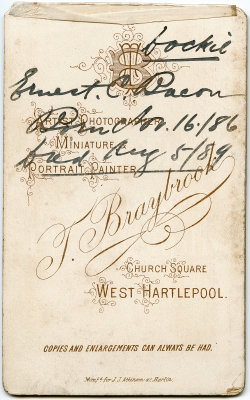 Jockie
Ernest C. Bacon
Born Nov. 16. '86
Aug 5/89
ARTIST PHOTOGRAPHER
MINIATURE &
PORTRAIT PAINTER
T. Braybrook
CHURCH SQUARE
WEST HARTLEPOOL.
COPIES AND ENLARGEMENTS CAN ALWAYS BE HAD.
Berlin.